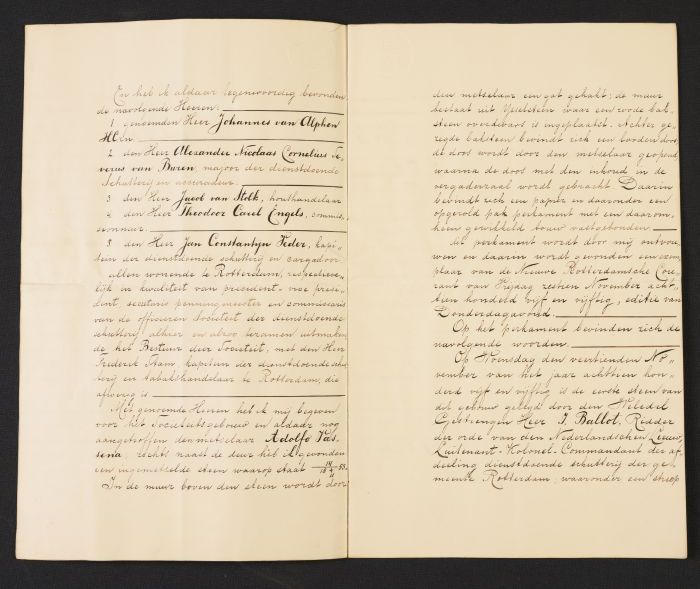 En heb ik aldaar tegenwoordig bevonden
de navolgende Heeren:
1 genoemden Heer Johannes van Alphen
HCln
2 den Heer Alexander Nicolaas Cornelius Te„
verus van Buren, majoor der dienstdoende
Schutterij en assuradeur.
3 den Heer Jacob van Stolk, houthandelaar
4 den Heer Theodoor Carel Engels, commis„
sionnair.
5 den Heer Jan Constantyn Veder, kapi„
tein der dienstdoende schutterij en cargadoor
allen wonende te Rotterdam, respectieve„
lijk in kwaliteit van president, vice presi„
dent, secretaris penningmeester en commissaris
van de officieren Societeit der dienstdoende
schutterij alhier en alzoo tezamen uitmaken
de het Bestuur dier Societeit, met den Heer
Frederik Stam, kapitein der dienstdoende schut
terij en tabakshandelaar te Rotterdam, die
afwezig is
Met genoemde Heeren heb ik mij begeven
voor het Societeitsgebouw en aldaar nog
aangetroffen den metselaar Adolfo Vas„
sena; rechts naast de deur heb ik gevonden
een ingemetselde steen waarop staat 18 14/11 55.
In de muur boven den steen wordt door
den metselaar een gat gehakt; de muur
bestaat uit Ysselsteen waar een roode bak„
steen overdwars is ingeplaatst. Achter ge„
zegde baksteen bevindt zich een looden doos
de doos wordt door den metselaar geopend
waarna de doos met den inhoud in de
vergaderzaal wordt gebracht. Daarin
bevindt zich een papier en daaronder een
opgerold pak perkament met een daarom„
heen gewikkeld touw vastgebonden.
dit perkament wordt door mij ontvou„
wen en daarin wordt gevonden een exem„
plaar van de Nieuwe Rotterdamsche Cou„
rant van Vrijdag zestien November acht„
tien honderd vijf en vijftig, editie van
Donderdagavond.
Op het perkament bevinden zich de
navolgende woorden
Op Woensdag den veertienden No„
vember van het jaar achttien hon„
derd vijf en vijftig is de eerste steen van
dit gebouw gelegd door den Weledel
Gestrengen Heer J. Ballot, Ridder
der orde van den Nederlandschen Leeuw,
Luitenant-Kolonel-Commandant der af„
deeling dienstdoende schutterij der ge„
meente Rotterdam; waaronder een streep